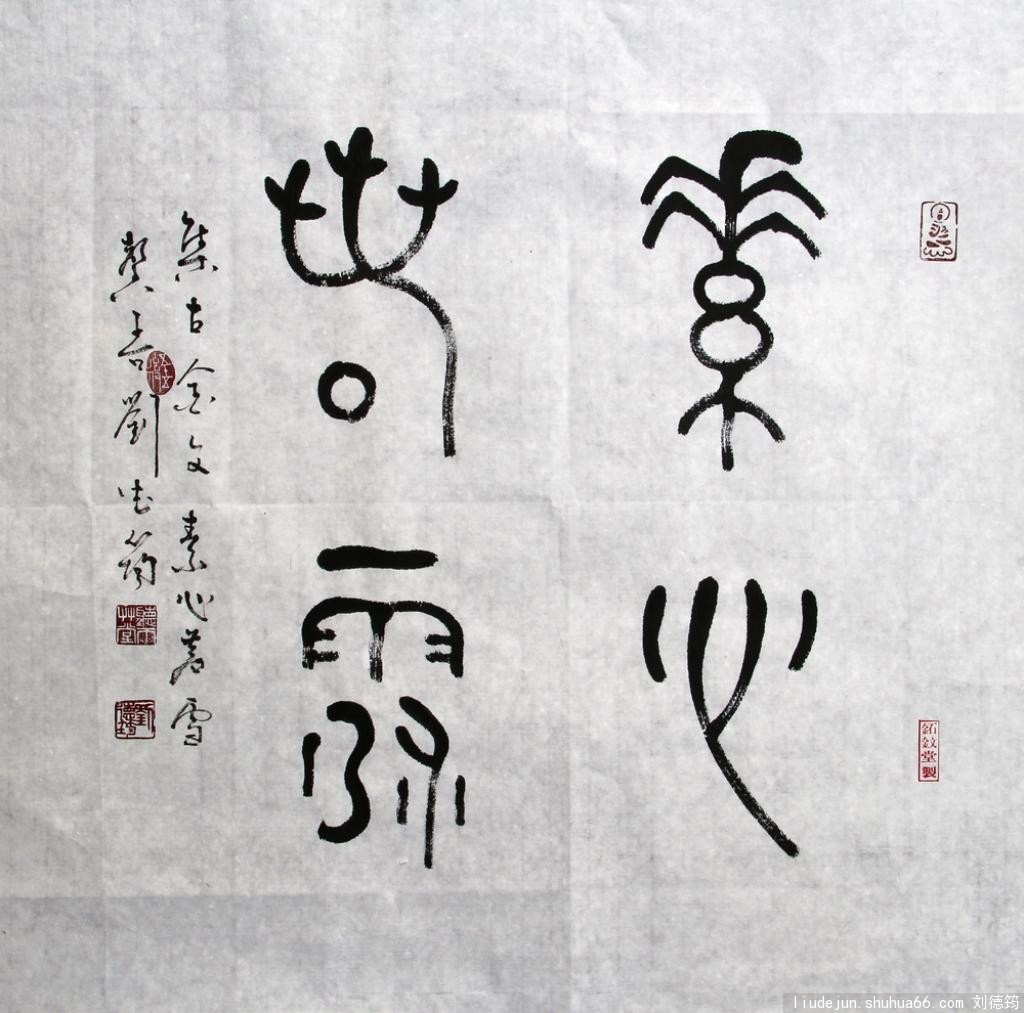 素心
若雪
集古金文 素心若雪
劉德筠
聽雨艸堂
鉐鈫堂製
liudejun.shuhua66.com 刘德筠